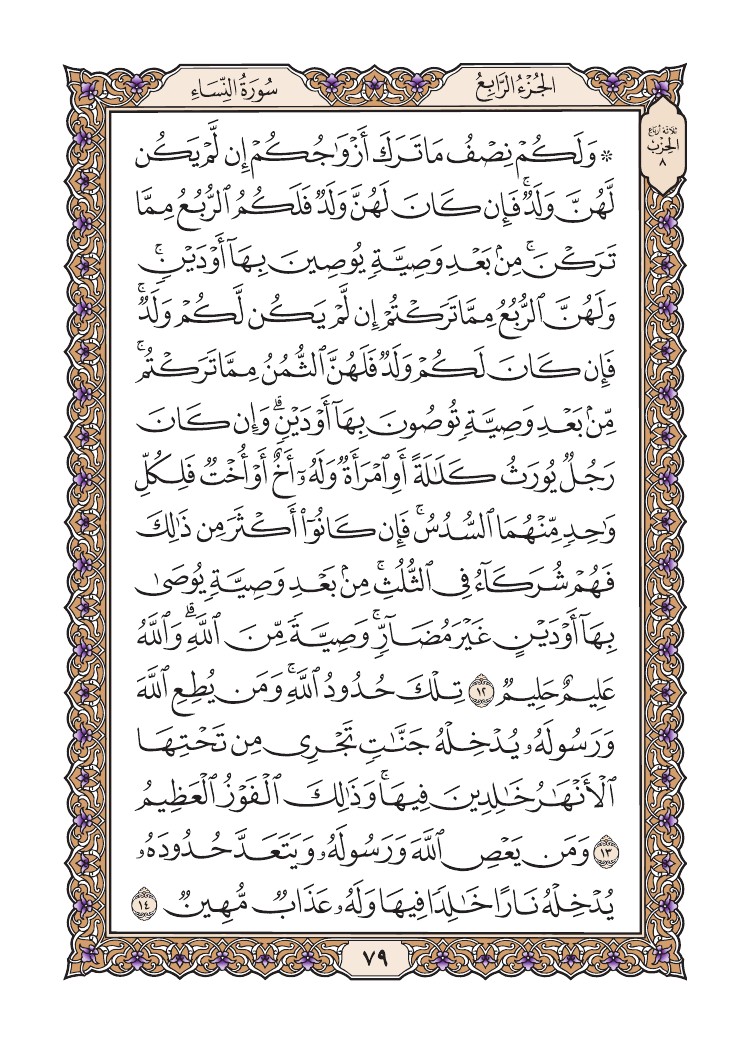 الجُزْءُ الرَّابِعُ
سُورَةُ النِّسَاءِ
ثلاثة أرباع
الحِزْب
٨
۞ وَلَكُمْ نِصْفُ مَا تَرَكَ أَزْوَٰجُكُمْ إِن لَّمْ يَكُن
لَّهُنَّ وَلَدٌۚ فَإِن كَانَ لَهُنَّ وَلَدٌ فَلَكُمُ ٱلرُّبُعُ مِمَّا
تَرَكْنَۚ مِنۢ بَعْدِ وَصِيَّةٍ يُوصِينَ بِهَآ أَوْ دَيْنٍۚ
وَلَهُنَّ ٱلرُّبُعُ مِمَّا تَرَكْتُمْ إِن لَّمْ يَكُن لَّكُمْ وَلَدٌۚ
فَإِن كَانَ لَكُمْ وَلَدٌ فَلَهُنَّ ٱلثُّمُنُ مِمَّا تَرَكْتُمۚ
مِّنۢ بَعْدِ وَصِيَّةٍ تُوصُونَ بِهَآ أَوْ دَيْنٍۗ وَإِن كَانَ
رَجُلٌ يُورَثُ كَلَٰلَةً أَوِ ٱمْرَأَةٌ وَلَهُۥٓ أَخٌ أَوْ أُخْتٌ فَلِكُلِّ
وَٰحِدٍ مِّنْهُمَا ٱلسُّدُسُۚ فَإِن كَانُوٓا۟ أَكْثَرَ مِن ذَٰلِكَ
فَهُمْ شُرَكَآءُ فِى ٱلثُّلُثِۚ مِنۢ بَعْدِ وَصِيَّةٍ يُوصَىٰ
بِهَآ أَوْ دَيْنٍ غَيْرَ مُضَآرٍّۚ وَصِيَّةً مِّنَ ٱللَّهِۗ وَٱللَّهُ
عَلِيمٌ حَلِيمٌ ١٢ تِلْكَ حُدُودُ ٱللَّهِۚ وَمَن يُطِعِ ٱللَّهَ
وَرَسُولَهُۥ يُدْخِلْهُ جَنَّٰتٍ تَجْرِى مِن تَحْتِهَا
ٱلْأَنْهَٰرُ خَٰلِدِينَ فِيهَاۚ وَذَٰلِكَ ٱلْفَوْزُ ٱلْعَظِيمُ
١٣ وَمَن يَعْصِ ٱللَّهَ وَرَسُولَهُۥ وَيَتَعَدَّ حُدُودَهُۥ
يُدْخِلْهُ نَارًا خَٰلِدًا فِيهَا وَلَهُۥ عَذَابٌ مُّهِينٌ ١٤
٧٩